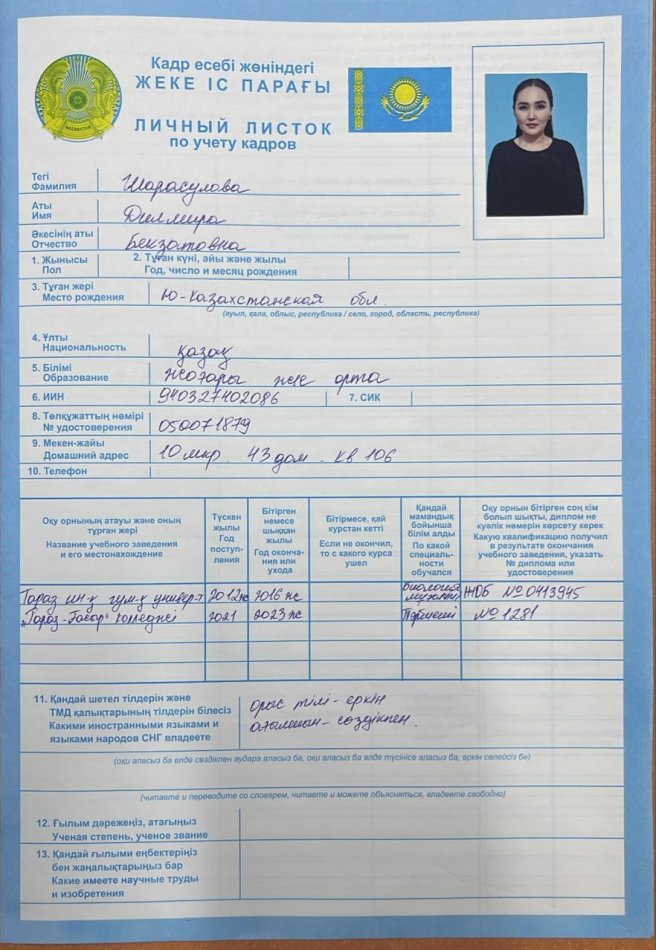 Кадр есебі жөніндегі
ЖЕКЕ ІС ПАРАҒЫ
ЛИЧНЫЙ ЛИСТОК
по учету кадров
ҚАЗАҚСТАН
Тегі
Фамилия
Шарасулова
Аты
Имя
Дилмира
Әкесінің аты
Отчество
Бекзатовна
1. Жынысы
Пол
2. Туған күні, айы және жылы
Год, число и месяц рождения
3. Туған жері
Место рождения
Ю-Казахстанская обл.
(ауыл, қала, облыс, республика / село, город, область, республика)
4. Ұлты
Национальность
қазақ
5. Білімі
Образование
жоғары және орта
6. ИИН
940327402086
7. СИК
8. Төлқұжаттың нөмірі
№ удостоверения
050071879
9. Мекен-жайы
Домашний адрес
10 мкр. 43 дом. кв 106
10. Телефон
Оқу орнының атауы және оның
тұрған жері
Название учебного заведения
и его местонахождение
Түскен
жылы
Год
поступ-
ления
Бітірген
немесе
шыққан
жылы
Год оконча-
ния или
ухода
Бітірмесе, қай
курстан кетті
Если не окончил,
то с какого курса
ушел
Қандай
мамандық
бойынша
білім алды
По какой
специаль-
ности
обучался
Оқу орнын бітірген соң кім
болып шықты, диплом не
куәлік нөмерін көрсету керек
Какую квалификацию получил
в результате окончания
учебного заведения, указать
№ диплома или
удостоверения
Тараз ин-у гум-у универ-т 2012ж 2016 ж Биология ЖОБ №0413945
"Тараз-Басар" колледжі 2021 2023 ж №1281
11. Қандай шетел тілдерін және
ТМД қалықтарының тілдерін білесіз
Какими иностранными языками и
языками народов СНГ владеете
орыс тілі - еркін
ағылшын - сөздікпен.
(оқи аласыз ба әлде сөздікпен аудара аласыз ба, оқи аласыз ба әлде түсінісе аласыз ба, еркін сөйлейсіз бе)
(читаете и переводите со словарем, читаете и можете объясняться, владеете свободно)
12. Ғылым дәрежеңіз, атағыңыз
Ученая степень, ученое звание
13. Қандай ғылыми еңбектеріңіз
бен жаңалықтарыңыз бар
Какие имеете научные труды
и изобретения